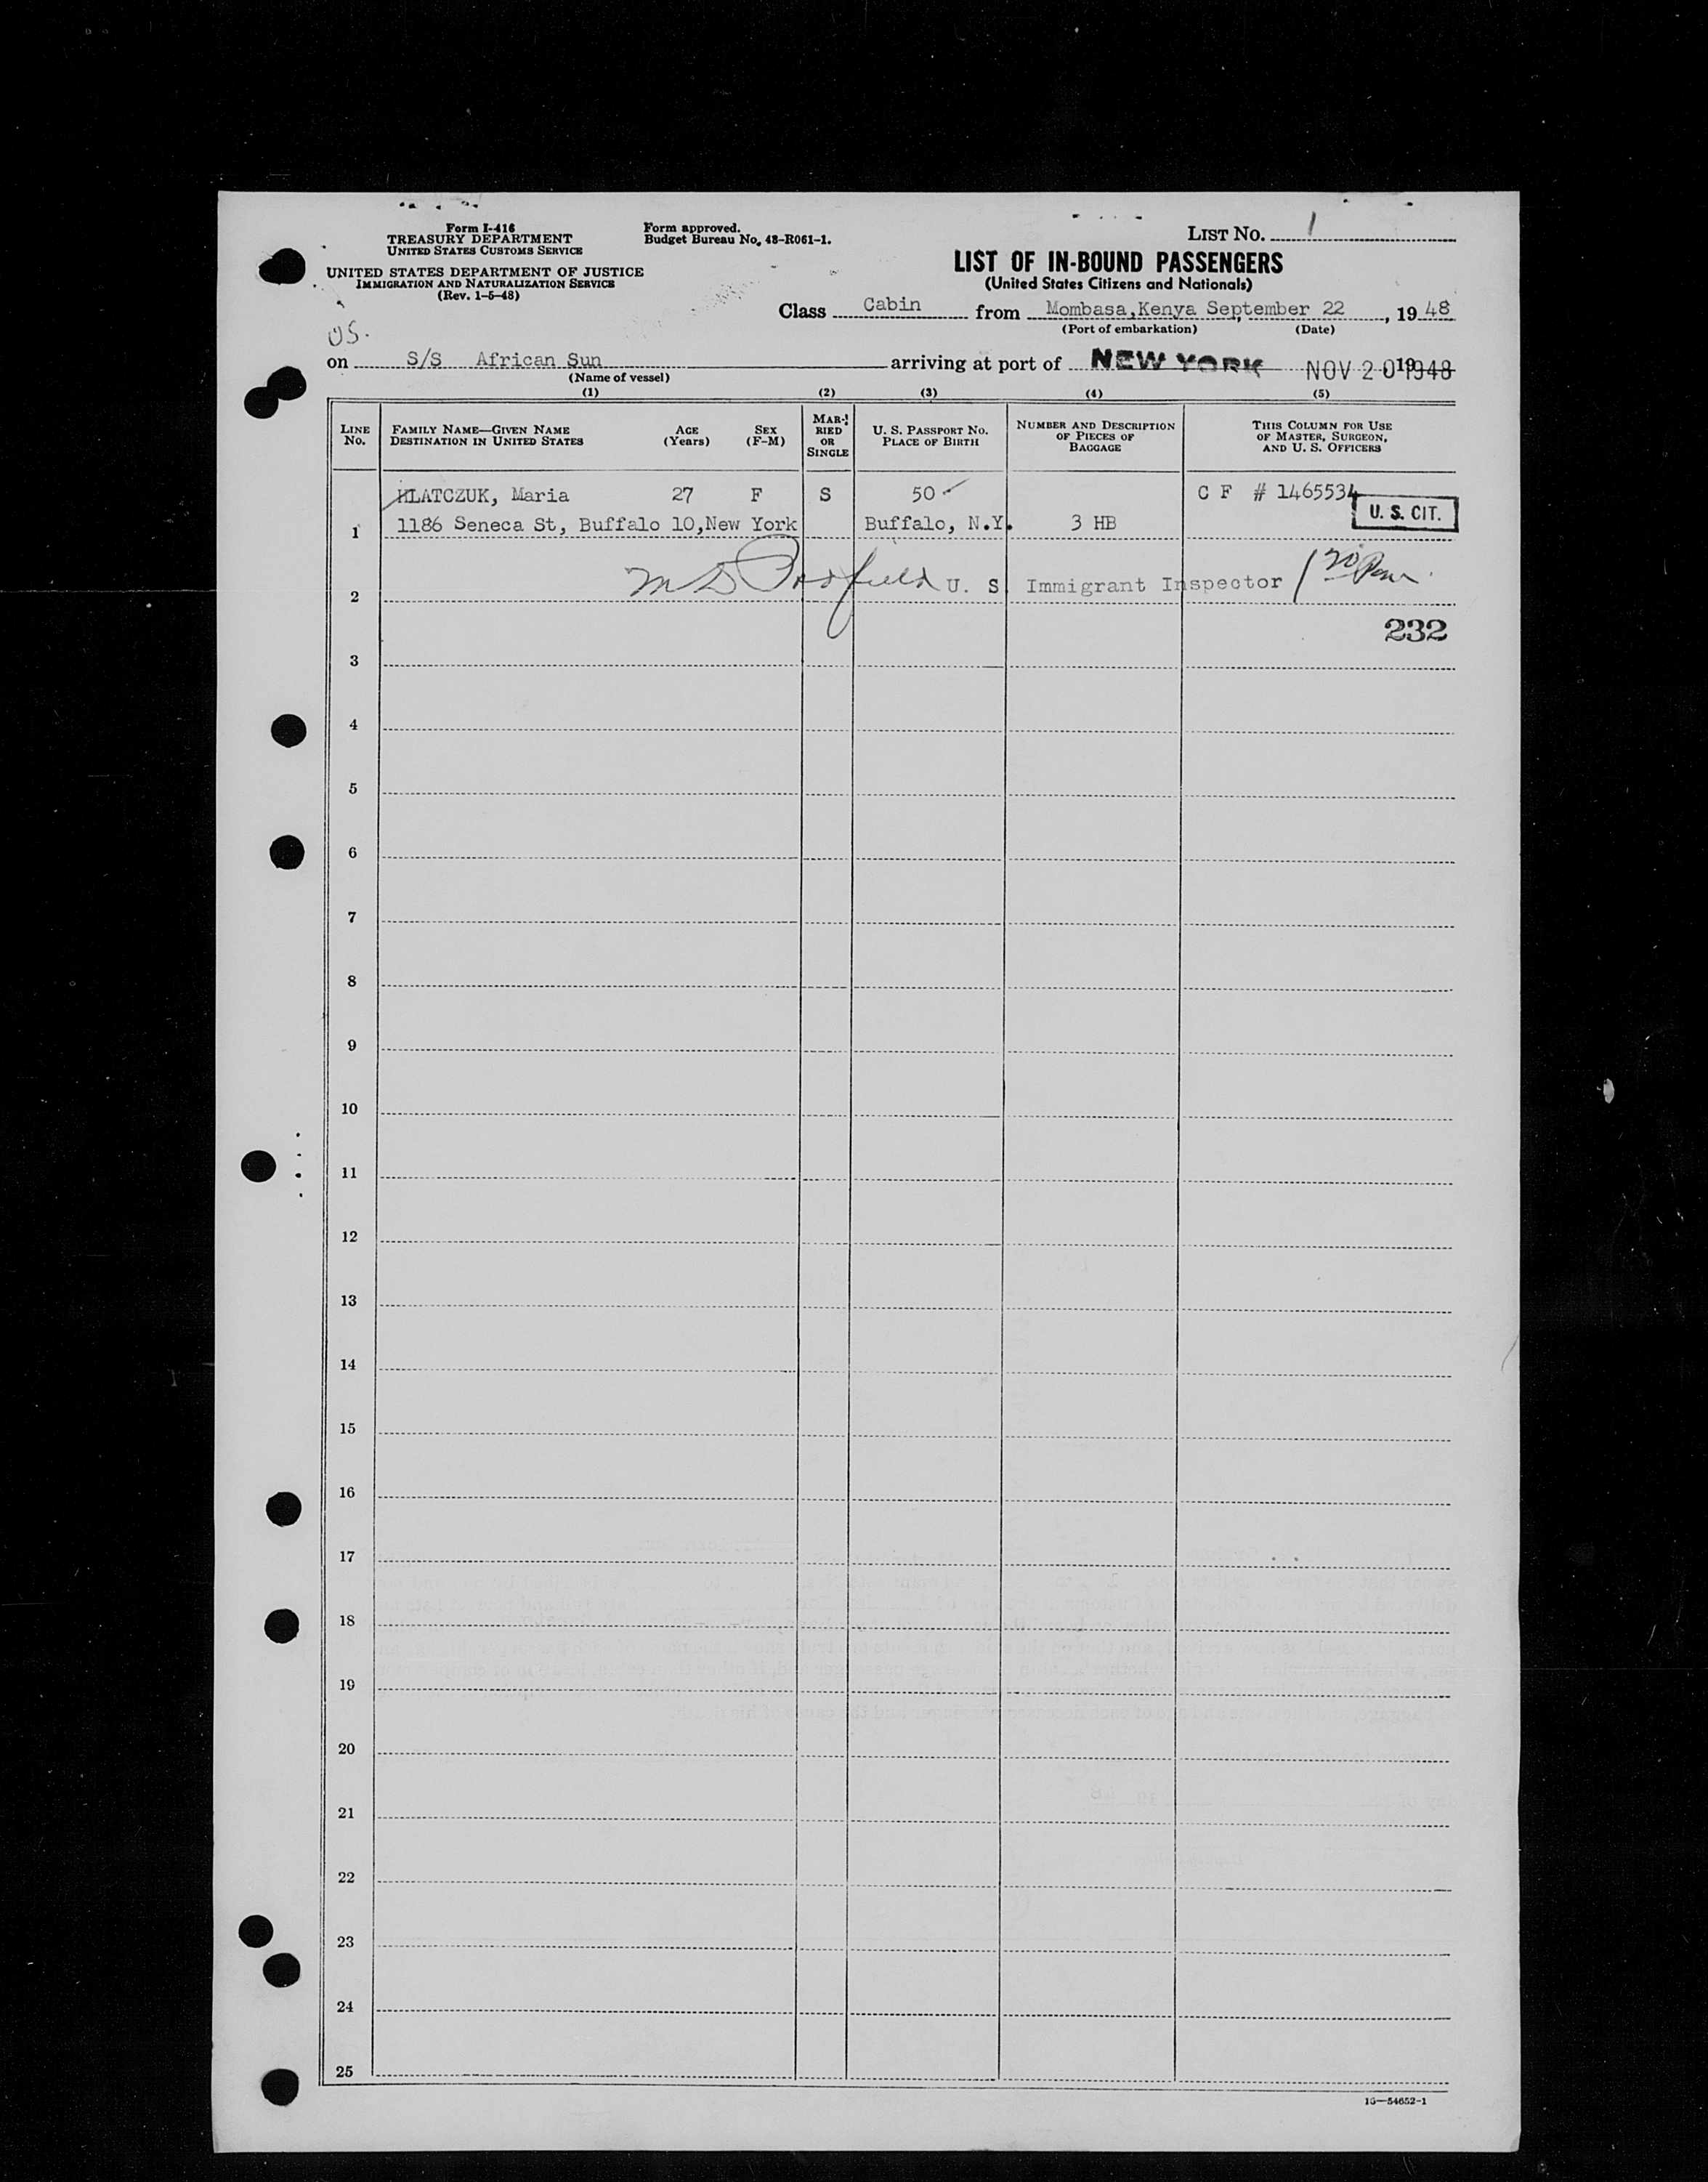 Form I-416
TREASURY DEPARTMENT
UNITED STATES CUSTOMS SERVICE
UNITED STATES DEPARTMENT OF JUSTICE
IMMIGRATION AND NATURALIZATION SERVICE
(Rev. 1-5-48)
Form approved.
Budget Bureau No. 48-R061-1.
LIST NO. 1
LIST OF IN-BOUND PASSENGERS
(United States Citizens and Nationals)
Class Cabin from Mombasa, Kenya September 22, 1948
(Port of embarkation) (Date)
US.
on S/S African Sun arriving at port of NEW YORK NOV 20 1948 19
(Name of vessel)
(1) (2) (3) (4) (5)
LINE NO.
FAMILY NAME—GIVEN NAME
DESTINATION IN UNITED STATES
AGE (Years)
SEX (F-M)
MARRIED OR SINGLE
U. S. PASSPORT NO.
PLACE OF BIRTH
NUMBER AND DESCRIPTION OF PIECES OF BAGGAGE
THIS COLUMN FOR USE OF MASTER, SURGEON, AND U. S. OFFICERS
HLATCZUK, Maria 27 F S 50 C F # 1465534
U. S. CIT.
1 1186 Seneca St, Buffalo 10, New York Buffalo, N.Y. 3 HB
2 U. S. Immigrant Inspector
232
3
4
5
6
7
8
9
10
11
12
13
14
15
16
17
18
19
20
21
22
23
24
25
16—54652-1